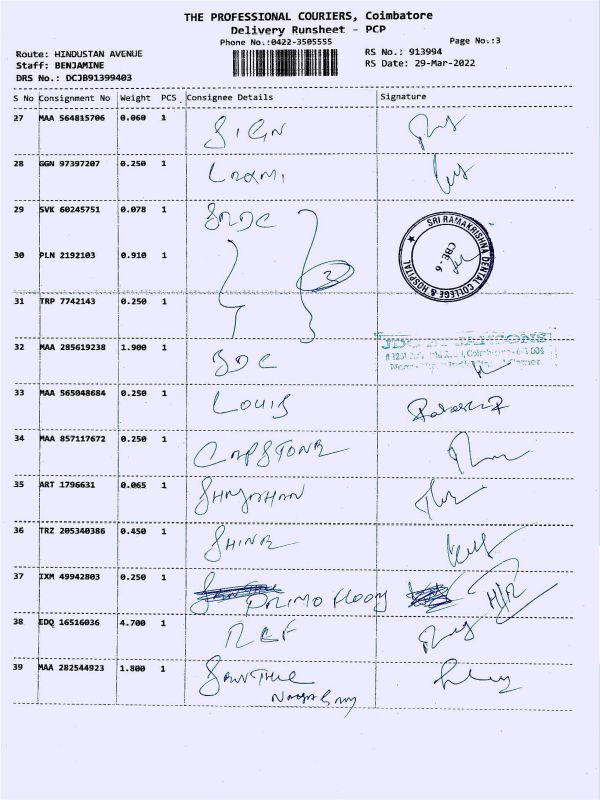 THE PROFESSIONAL COURIERS, Coimbatore
Delivery Runsheet - PCP
Phone No.:0422-3505555
Page No.:3
Route: HINDUSTAN AVENUE
RS No.: 913994
Staff: BENJAMINE
RS Date: 29-Mar-2022
DRS No.: DCJB91399403
S No Consignment No Weight PCS. Consignee Details Signature
27 MAA 564815706 0.060 1 SIGN
28 GGN 97397207 0.250 1 Laxmi
29 SVK 60245751 0.078 1 SRDC
30 PLN 2192103 0.910 1
3
SRI RAMAKRISHNA DENTAL COLLEGE & HOSPITAL
CBE-6
31 TRP 7742143 0.250 1
32 MAA 285619238 1.900 1 JDC
33 MAA 565048684 0.250 1 LOUIS
34 MAA 857117672 0.250 1 CAPSTONE
35 ART 1796631 0.065 1
36 TRZ 205340386 0.450 1 SHINE
37 IXM 49942803 0.250 1 PRIMO Floor
38 EDQ 16516036 4.700 1 REF
39 MAA 282544923 1.800 1